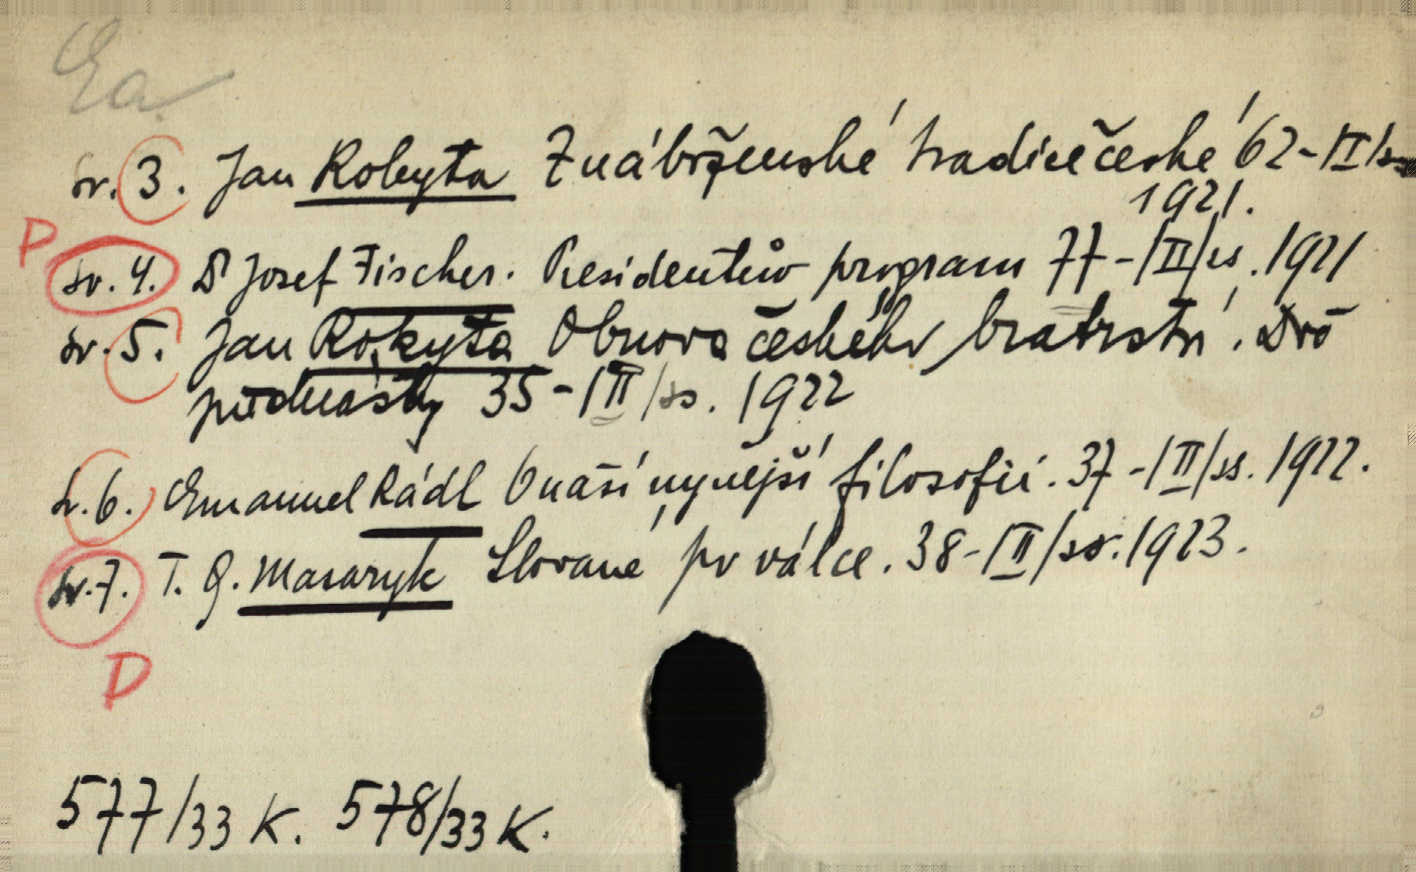 sv. 3. Jan Rokyta Z náboženské tradice české 62-|II|ss
1921.
P
sv. 4. Dr Josef Fischer. Presidentův program 77-|II|ss. 1921
sv. 5. Jan Rokyta Obnova českého bratrství. Dvě
přednášky 35-|II|ss. 1922
sv. 6. Emanuel Rádl O naší nynější filosofii. 37-|II|ss. 1922.
sv. 7. T. G. Masaryk Slované po válce. 38-|II|ss. 1923.
D
577/33 K. 578/33 K.